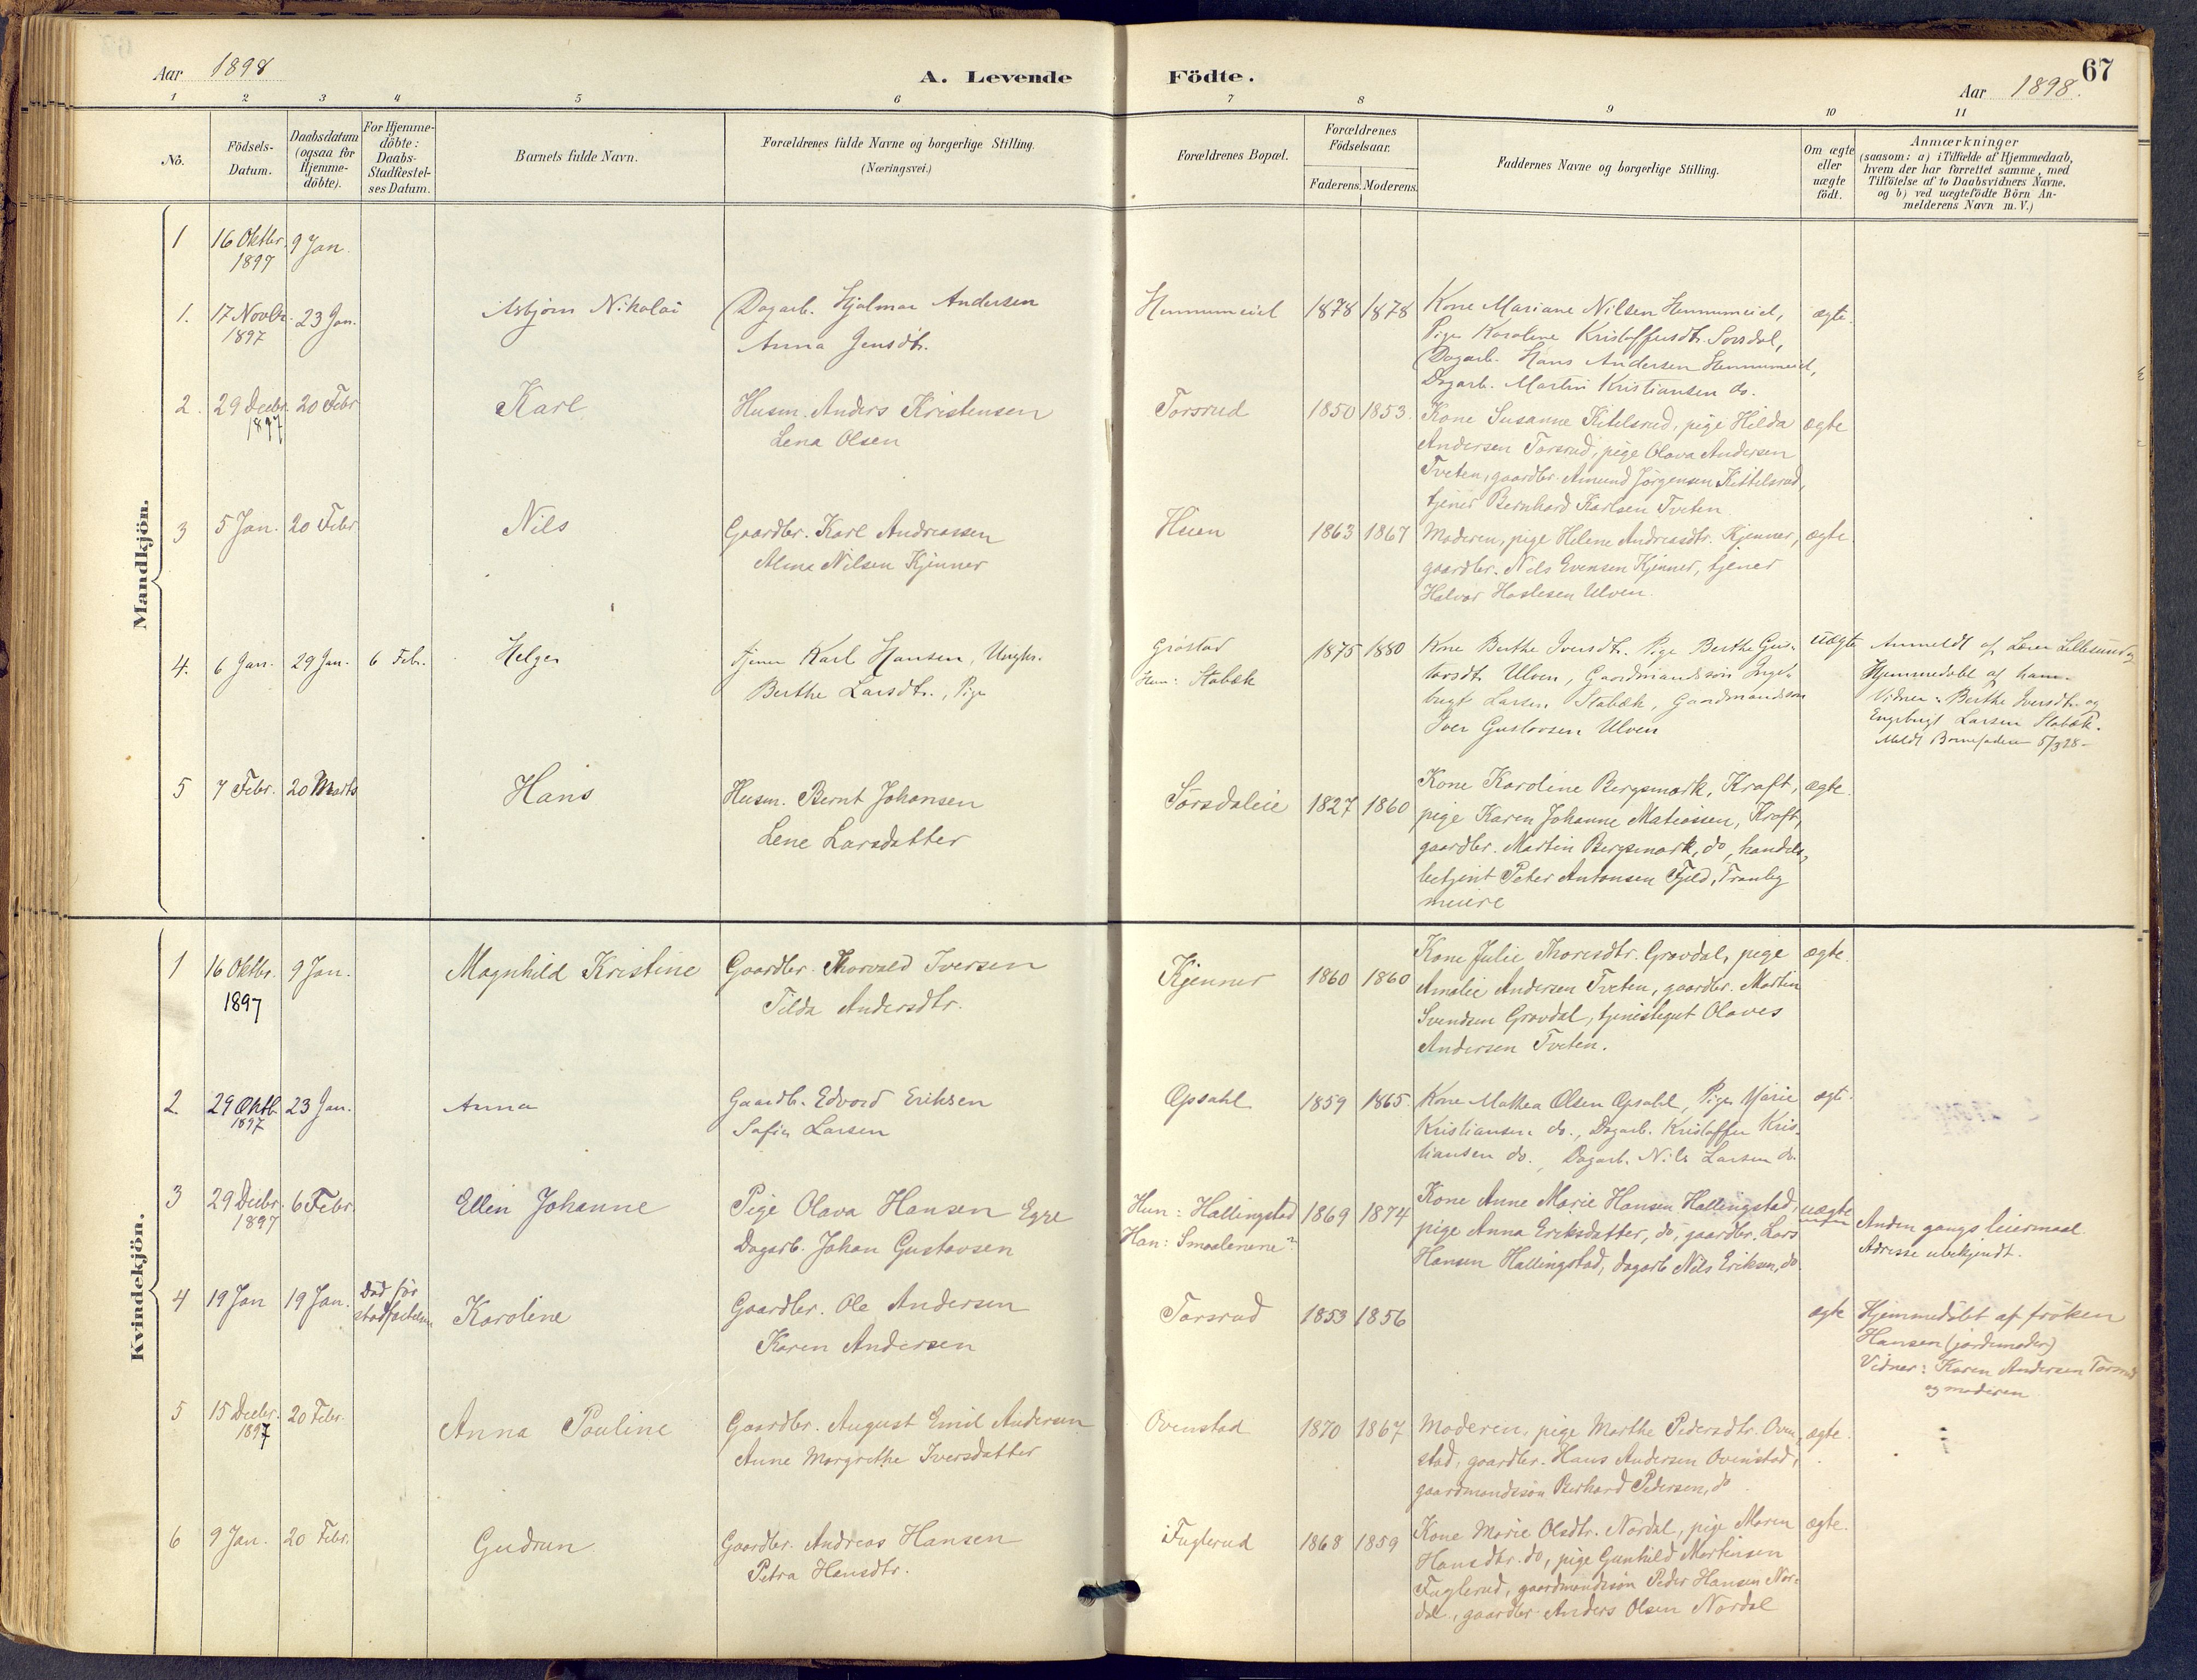 Aar 1898
A. Levende Födte.
Aar 1898.
67
1 2 3 4 5 6 7 8 9 10 11
Nö.
Födsels-Datum.
Daabsdatum (ogsaa for Hjemme-döbte).
For Hjemme-döbte: Daabs-Stadfæstel-ses Datum.
Barnets fulde Navn.
Forældrenes fulde Navne og borgerlige Stilling.
(Næringsvei.)
Forældrenes Bopæl.
Forældrenes Födselsaar.
Faderens. Moderens.
Faddernes Navne og borgerlige Stilling.
Om ægte eller uægte födt.
Anmærkninger
(saasom: a) i Tilfælde af Hjemmedaab,
hvem der har forrettet samme, med
Tilföielse af to Daabsvidners Navne.
og b) ved uægtefödte Börn An-
melderens Navn m. V.)
Mandkjön.
1 16 Oktbr. 1897 9 Jan.
1. 17 Novbr. 1897 23 Jan. Asbjörn Nikolai
Dagarb. Hjalmar Andersen
Anna Jensdtr.
Hennumeiet 1878 1878
Kone Mariane Nilsen Hennumeiet,
Pige Karoline Kristoffersdtr. Sorsdal,
Dagarb. Hans Andersen Hennumeiet,
Dagarb. Martin Kristiansen do.
ægte.
2. 29 Decbr. 1897 20 Febr Karl
Husm. Anders Kristensen
Lena Olsen
Torsrud 1850 1853.
Kone Susanne Kitelsrud, pige Hilda
Andersen Torsrud, pige Olava Andersen
Tveten, gaardbr. Amund Jörgensen Kittelsrud,
tjener Bernhard Karlsen Tveten
ægte
3 5 Jan. 20 Febr Nils
Gaardbr. Karl Andreassen
Alma Nilsen Kjenner
Huen 1863 1867
Moderen, pige Helene Andreasdtr. Kjenner,
gaardbr. Nils Evensen Kjenner, tjener
Halvor Haslesen Ulven.
ægte
4. 6 Jan. 29 Jan. 6 Febr. Helge
Tjener Karl Hansen, Ungk.
Berthe Larsdtr., Pige
Gröstad
Hun: Stabæk
1875 1880
Kone Berthe Iversdtr. Pige Berthe Gus-
tavsdtr. Ulven, Gaardmandssön Inge-
brigt Larsen Stabæk, Gaardmandssön
Iver Gustavsen Ulven
uægte
Anmeldt af Lærer Lillesund og
Hjemmedöbt af ham.
Vidner: Berthe Iversdtr. og
Engebrigt Larsen Stabæk.
Meldt Barnefaderen 5/3 98 -
5 7 Febr. 20 Marts Hans
Husm. Bernt Johansen
Lene Larsdatter
Sorsdaleie 1827 1860
Kone Karoline Bergsmark, Kraft,
pige Karen Johanne Matiassen, Kraft,
gaardbr. Martin Bergsmark, do, handels-
betjent Peter Antonsen Fjeld, Tranby
meieri
ægte.
Kvindekjön.
1 16 Oktbr. 1897 9 Jan. Magnhild Kristine
Gaardbr. Thorvald Iversen
Tilda Andersdtr.
Kjenner 1860 1860
Kone Julie Thoresdtr. Gravdal, pige
Amalie Andersen Tveten, gaardbr. Martin
Svendsen Gravdal, tjenestegut Olaves
Andersen Tveten.
ægte.
2. 29 Oktb. 1897 23 Jan. Anna
Gaardb. Edvard Eriksen
Sofie Larsen
Opsahl 1859 1865.
Kone Mathea Olsen Opsahl, Pige Marie
Kristiansen do., Dagarb. Kristoffer Kris-
tiansen do., Dagarb. Nils Larsen do.
ægte.
3 29 Decbr. 1897 6 Febr. Ellen Johanne
Pige Olava Hansen Egge
Dagarb. Johan Gustavsen
Hun: Hallingstad
Han: Smaalenene?
1869 1874
Kone Anne Marie Hansen Hallingstad,
pige Anna Eriksdatter, do, gaardbr. Lars
Hansen Hallingstad, dagarb Nils Eriksen, do
uægte
Anden gangs leiermaal.
Adresse ubekjendt.
4 19 Jan 19 Jan. Död för stadfæstelsen Karoline
Gaardbr. Ole Andersen
Karen Andersen
Torsrud 1853 1856
ægte
Hjemmedöbt af fröken
Hansen (jordemoder)
Vidner: Karen Andersen Torsrud
og moderen
5 15 Decbr. 1897 20 Febr. Anna Pauline
Gaardbr. August Emil Andersen
Anne Margrethe Iversdatter
Ovenstad 1870 1867
Moderen, pige Marthe Pedersdtr. Oven-
stad, gaardbr. Hans Andersen Ovenstad,
gaardmandssön Berhard Pedersen, do
ægte.
6 9 Jan. 20 Febr. Gudrun
Gaardbr. Andreas Hansen
Petra Hansdtr.
Fuglerud 1868 1859
Kone Marie Olsdtr. Nordal, pige Maren
Hansdtr. do, pige Gunhild Martinsen
Fuglerud, gaardmandssön Peder Hansen Nor-
dal, gaardbr Anders Olsen Nordal
ægte.